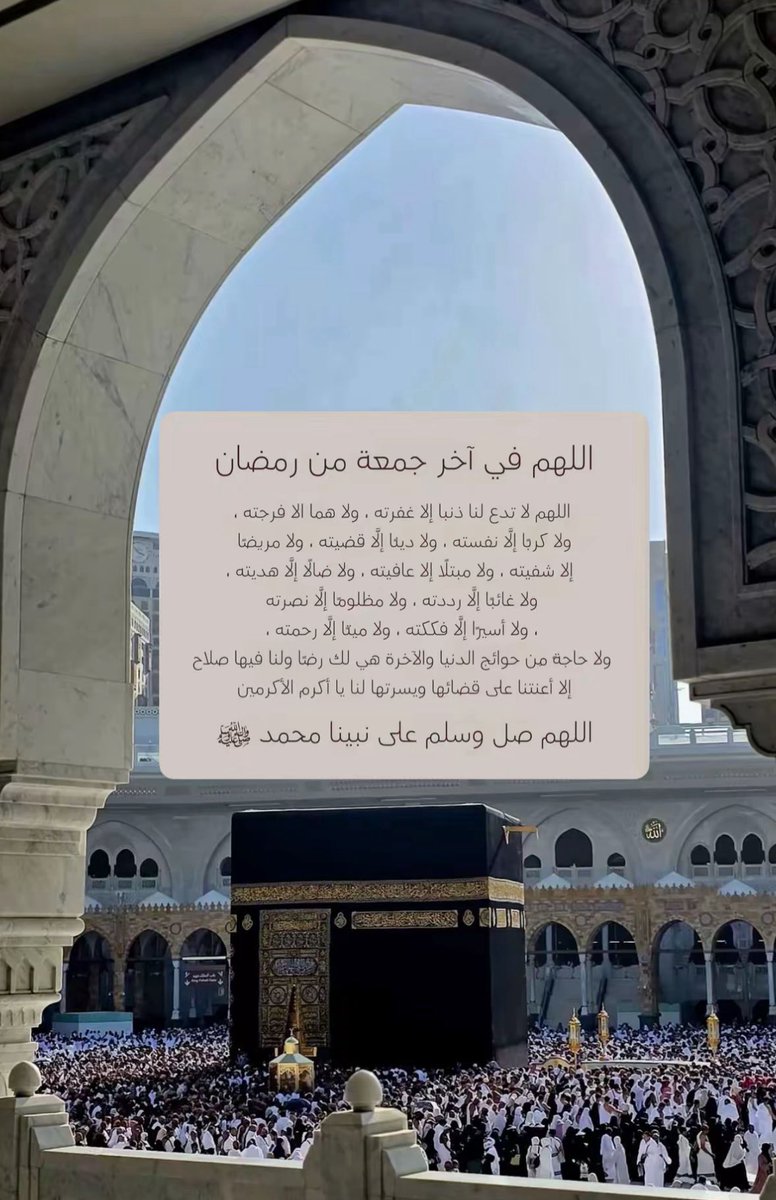 اللهم في آخر جمعة من رمضان
اللهم لا تدع لنا ذنبا إلا غفرته ، ولا هما الا فرجته ،
ولا كربًا إلَّا نفسته ، ولا دينًا إلَّا قضيته ، ولا مريضًا
إلا شفيته ، ولا مبتلًا إلا عافيته ، ولا ضالًا إلَّا هديته ،
ولا غائبًا إلَّا رددته ، ولا مظلومًا إلَّا نصرته
، ولا أسيرًا إلَّا فككته ، ولا ميتًا إلَّا رحمته ،
ولا حاجة من حوائج الدنيا والآخرة هي لك رضًا ولنا فيها صلاح
إلا أعنتنا على قضائها ويسرتها لنا يا أكرم الأكرمين
اللهم صل وسلم على نبينا محمد ﷺ
الله